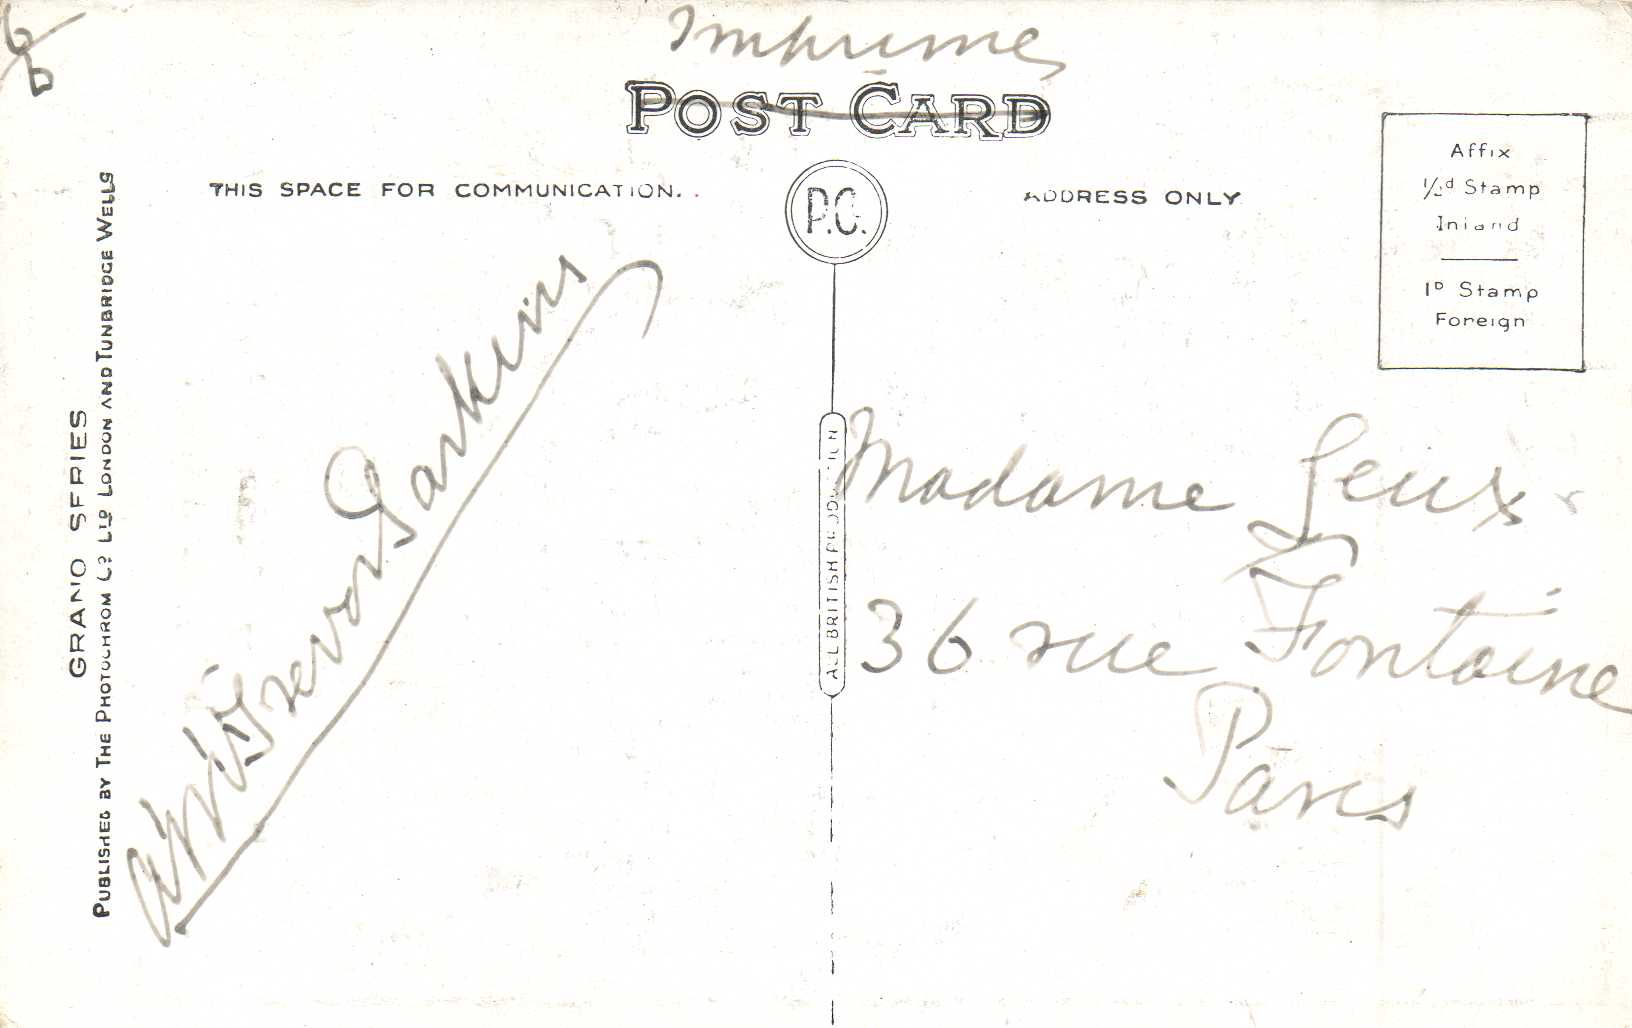 Imprimé
POST CARD
THIS SPACE FOR COMMUNICATION.
P.C.
ADDRESS ONLY
Affix
½d Stamp
Inland
1D Stamp
Foreign
GRAND SERIES
PUBLISHED BY THE PHOTOCHROM Co. LTD. LONDON AND TUNBRIDGE WELLS
ALL BRITISH PRODUCTION
Trevor Darkins
Madame
36 rue Fontaine
Paris